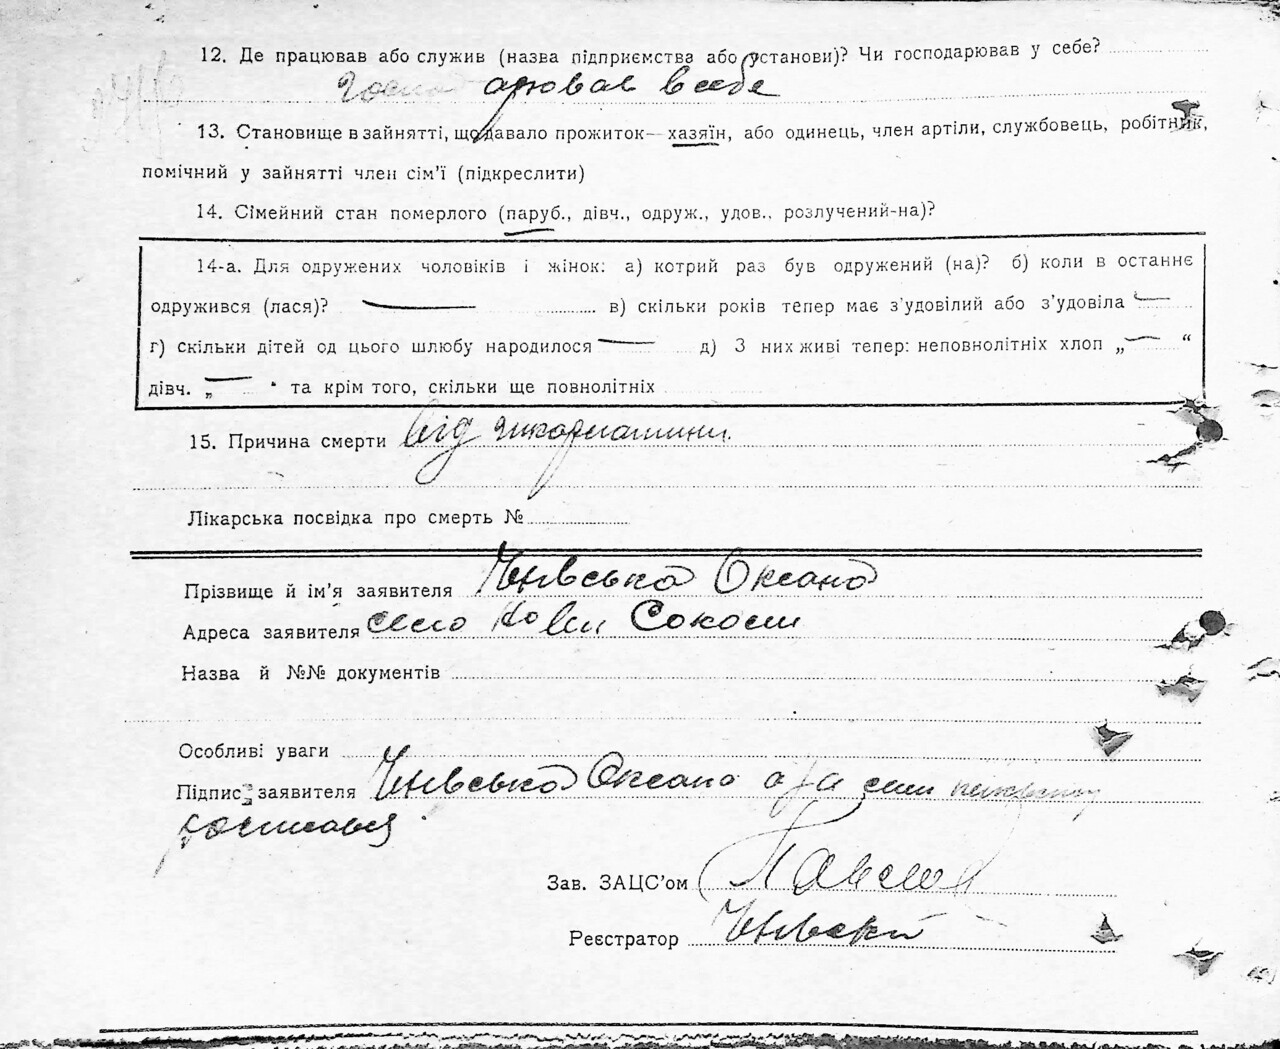 12. Де працював або служив (назва підприємства або установи)? Чи господарював у себе?
господарював в себе
13. Становище в зайнятті, що давало прожиток—хазяїн, або одинець, член артіли, службовець, робітник,
помічний у зайнятті член сім'ї (підкреслити)
14. Сімейний стан померлого (паруб., дівч., одруж., удов., розлучений-на)?
14-а. Для одружених чоловіків і жінок: а) котрий раз був одружений (на)? б) коли в останнє
одружився (лася)? — в) скільки років тепер має з'удовілий або з'удовіла —
г) скільки дітей од цього шлюбу народилося — д) З них живі тепер: неповнолітніх хлоп „—“
дівч. „—“ та крім того, скільки ще повнолітніх
15. Причина смерти від шкарлатини.
Лікарська посвідка про смерть №
Прізвище й ім'я заявителя Оксана
Адреса заявителя село Нові Соколи
Назва й №№ документів
Особливі уваги
Підпис заявителя Оксана а за
Зав. ЗАЦС'ом
Реєстратор